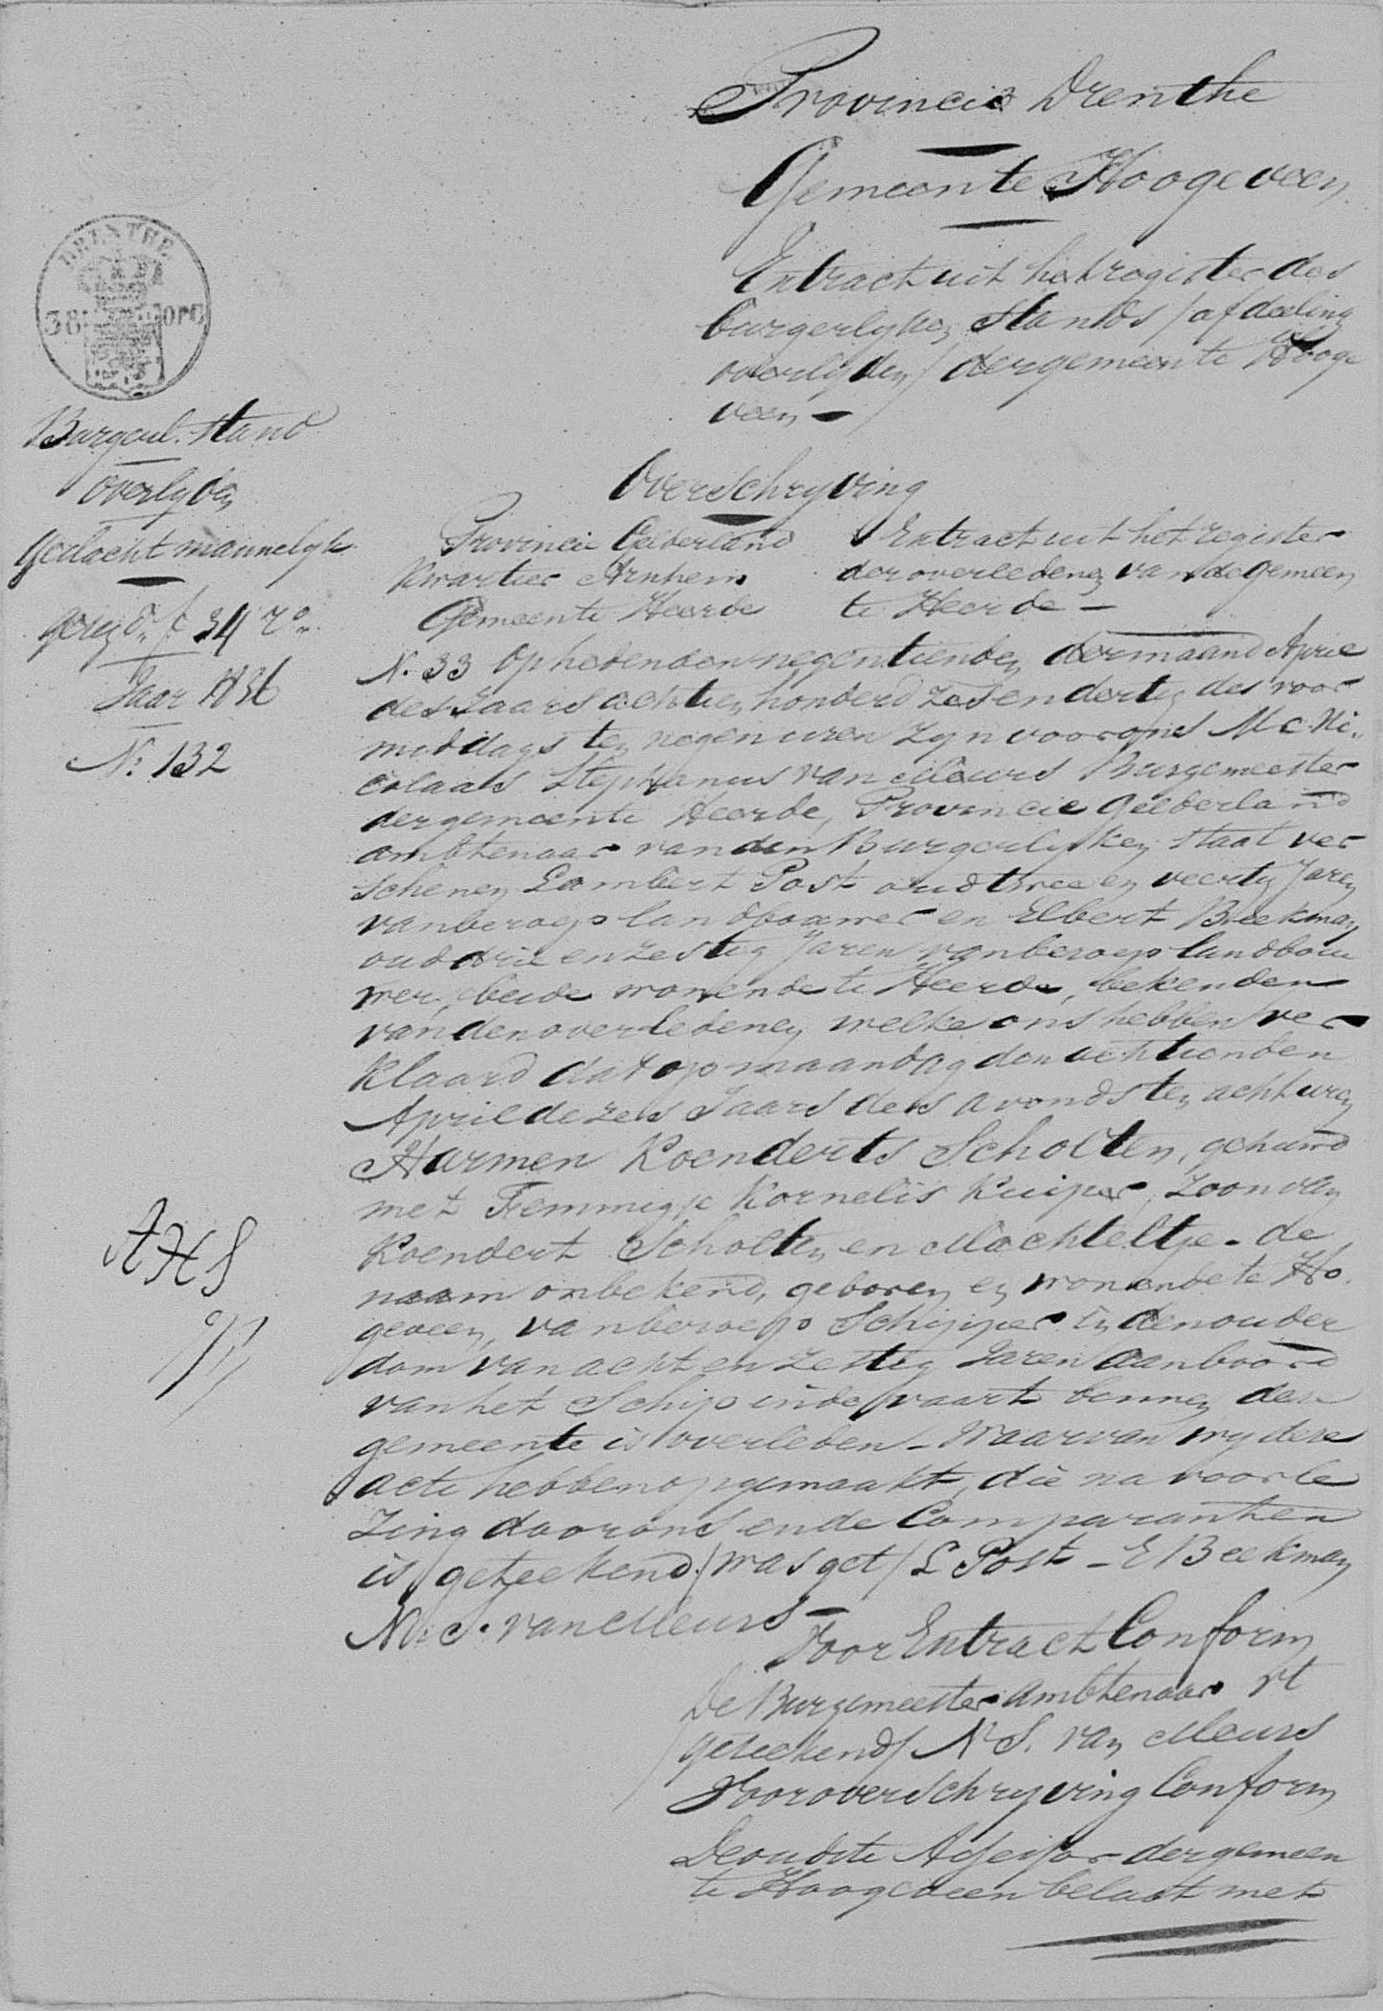 Provincie Drenthe
Gemeente Hoogeveen
Extract uit het register des
burgerlyken Stands / afdeeling
overlyden / der gemeente Hooge
veen
DRENTHE
38
Burgerl. Stand
overlyden
Geslacht mannelyk
34
Jaar 1836
N: 132
Overschryving
Provincie Gelderland
Kwartier Arnhem
Gemeente Heerde
Extract uit het register
der overledenen van de gemeen
te Heerde
N. 33 Op heden den negentienden der maand April
des Jaars achtien honderd zes en dertig des voor
middags ten negen uren zyn voor ons Mr Ni
colaas Stephanus van Meurs Burgemeester
der gemeente Heerde, Provincie Gelderland
ambtenaar van den Burgerlyken staat ver
schenen Lambert Post oud twee en veertig Jaren
van beroep landbouwer en Elbert Beekman
oud drie en zestig Jaren van beroep landbou
wer, beide wonende te Heerde, bekenden
van den overledenen welke ons hebben ver
klaard dat op maandag den achtienden
April dezes Jaars des avonds ten acht uren
Harmen Koenderts Scholten, gehuwd
met Femmigje Kornelis Kuiper, Zoon van
Koendert Scholten en Machteltje - de
naam onbekend, geboren en wonende te Ho
geveen, van beroep Schipper in den ouder
dom van acht en zestig Jaren aan boord
van het Schip in de vaart binnen deze
gemeente is overleden - Waarvan wy deze
acte hebben opgemaakt, die na voorle
zing door ons en de Comparanten
is geteekend / was get / L Post - E Beekman
N. S. van Meurs -
Voor Extract Conform
De Burgemeester ambtenaar vt
geteekend / N S. van Meurs
Voor overschryving Conform
De oudste Assessor der gemeen
te Hoogeveen belast met
AHS